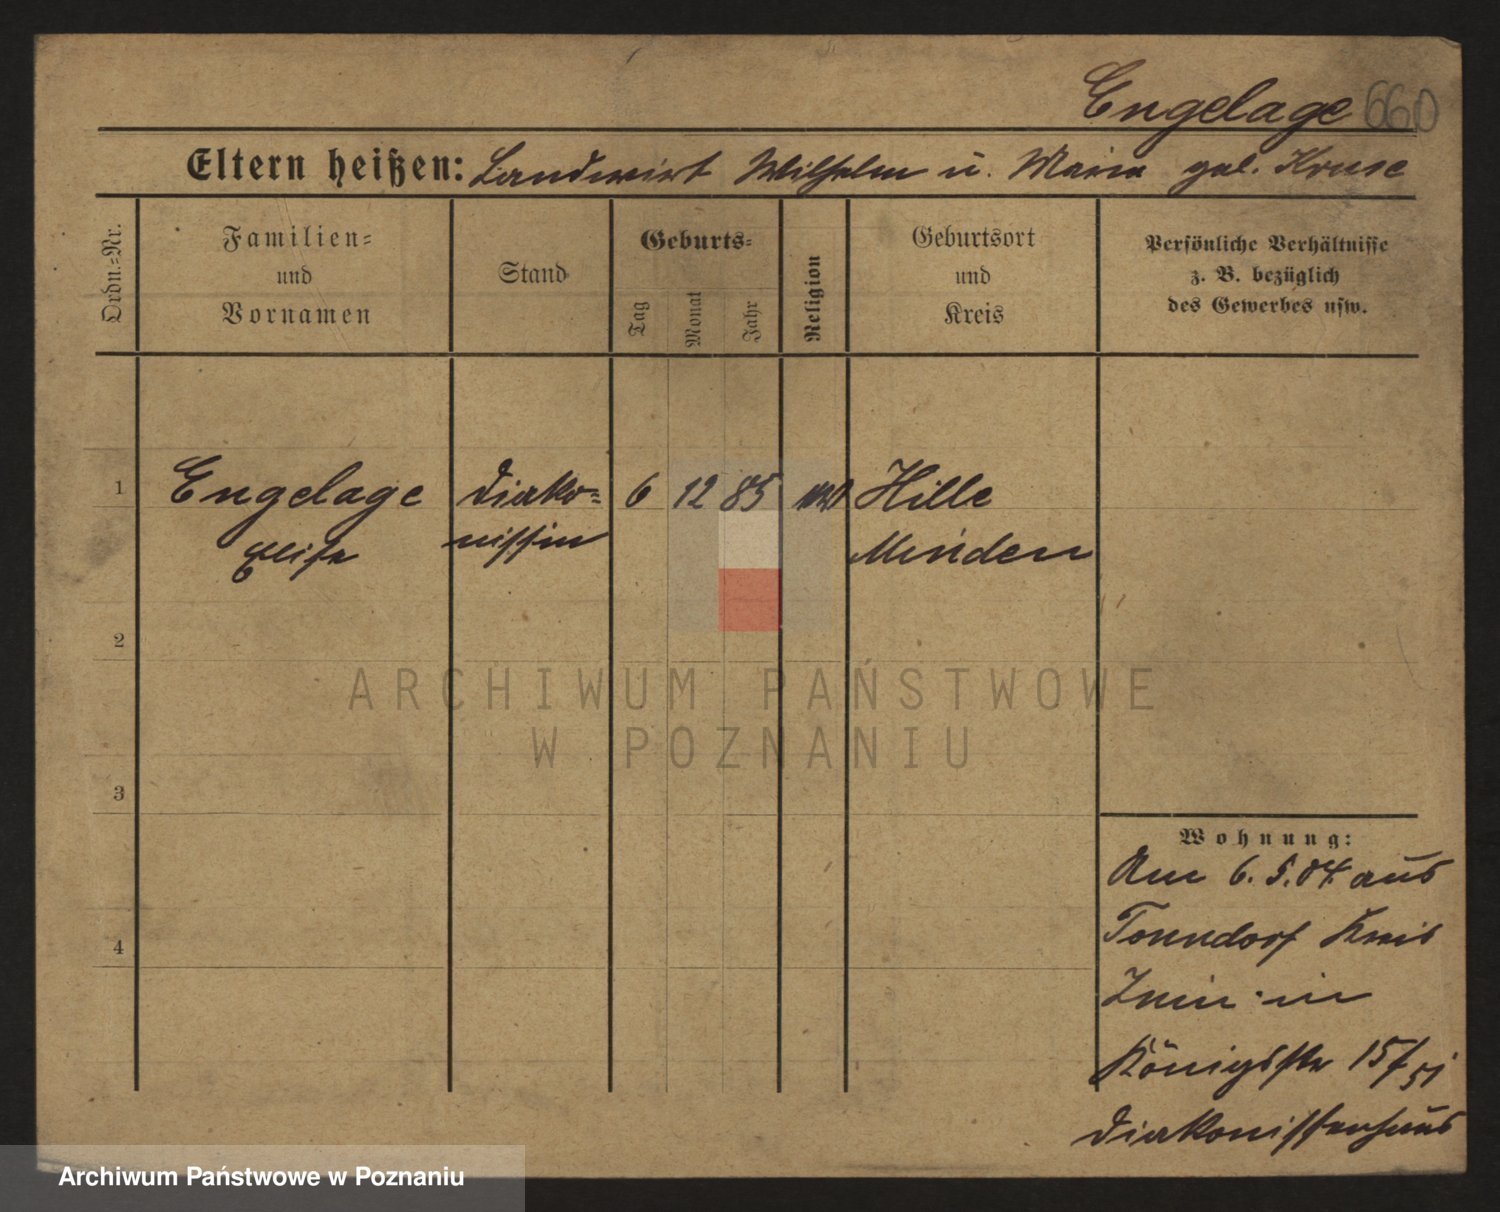 Engelage 660
Eltern heißen: Landwirt Wilhelm u. Marie geb. Kruse
Ordn.-Nr.
Familien-
und
Vornamen
Stand
Geburts-
Tag
Monat
Jahr
Religion
Geburtsort
und
Kreis
Persönliche Verhältnisse
z. B. bezüglich
des Gewerbes usw.
1 Engelage Diako- 6 12 85 Hille
Elise nissin Minden
2
3
4
Wohnung:
Am 6. 5. 04 aus
Tonndorf Kreis
Znin in
Königstr 15/
Diakonissenhaus
ARCHIWUM PAŃSTWOWE
W POZNANIU
Archiwum Państwowe w Poznaniu